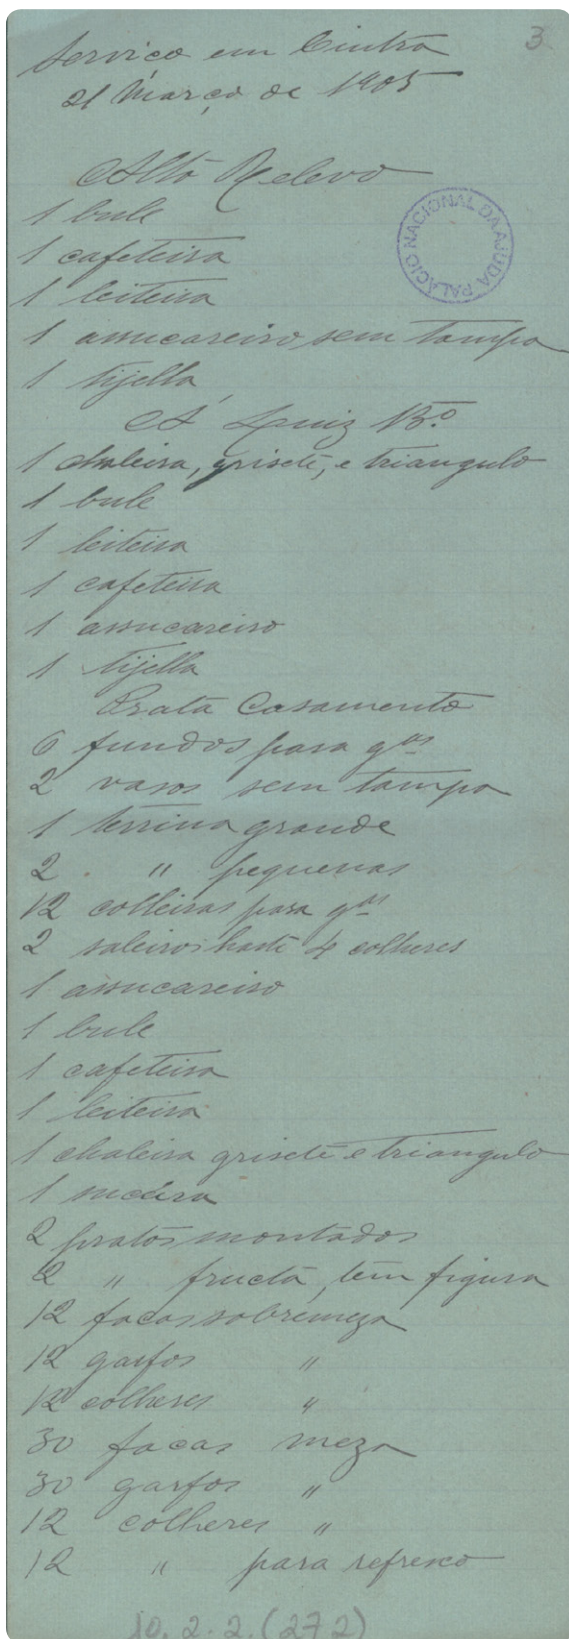 3
Serviço em Cintra
21 Março de 1905
PALÁCIO NACIONAL DA AJUDA
Alto Relevo
1 bule
1 cafeteira
1 leiteira
1 assucareiro sem tampa
1 tijella
Luiz 15.º
1 chaleira, griseté, e triangulo
1 bule
1 leiteira
1 cafeteira
1 assucareiro
1 tijella
Prata Casamento
6 fundos para g.as
2 vasos sem tampa
1 terrina grande
2 " pequenas
12 colleiras para g.as
2 saleiros haste 4 colheres
1 assucareiro
1 bule
1 cafeteira
1 leiteira
1 chaleira griseté e triangulo
1
2 pratos montados
2 " fructa, tem figura
12 facas sobremeza
12 garfos "
12 colheres "
30 facas meza
30 garfos "
12 colheres "
12 " para refresco
10.2.2.(272)